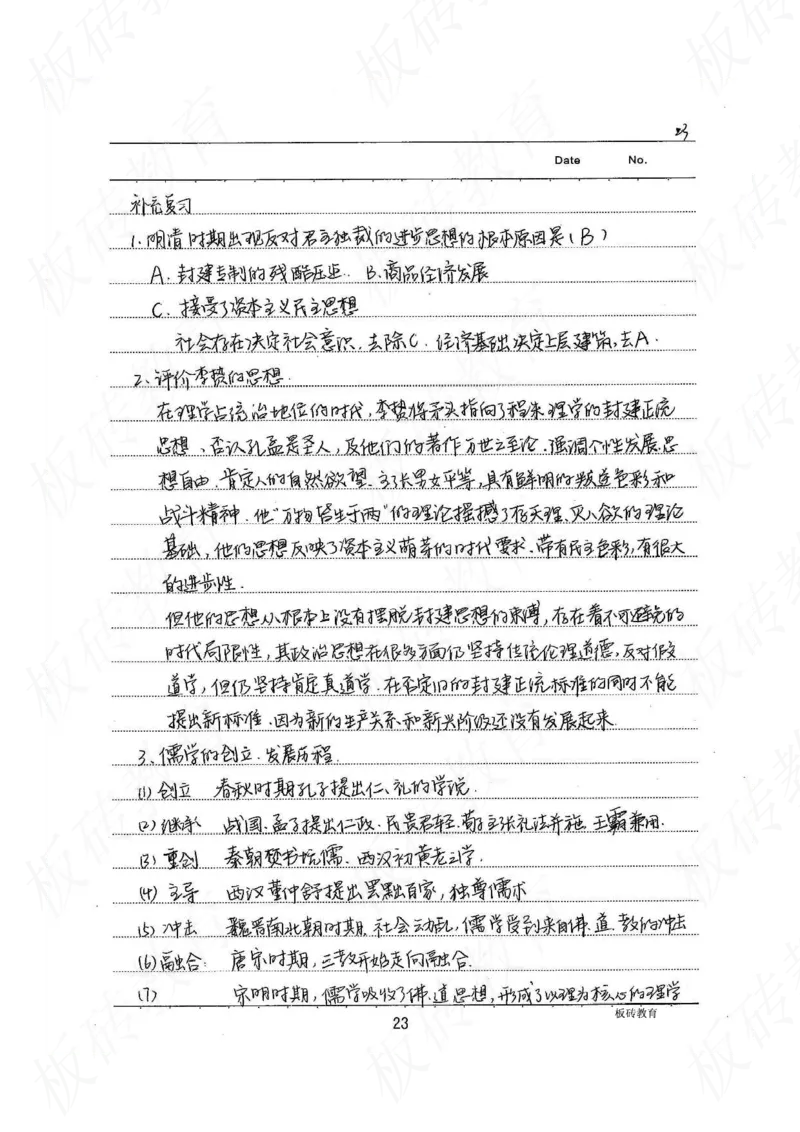 23
Date No.
补充复习
1.明清时期出现反对君主独裁的进步思想的根本原因是(B)
A.封建专制的残酷压迫. B.商品经济发展
C.接受了资本主义民主思想
社会存在决定社会意识.去除C.经济基础决定上层建筑,去A.
2、评价李贽的思想.
在理学占统治地位的时代,李贽将矛头指向了程朱理学的封建正统
思想、否认孔孟是圣人,及他们的著作万世之至论.强调个性发展.思
想自由.肯定人的自然欲望.主张男女平等,具有鲜明的叛道色彩和
战斗精神.他"万物皆生于两"的理论摇撼了存天理、灭人欲的理论
基础,他的思想反映了资本主义萌芽的时代要求.带有民主色彩,有很大
的进步性.
但他的思想从根本上没有摆脱封建思想的束缚,存在着不可避免的
时代局限性,其政治思想在很多方面仍坚持传统伦理道德,反对假
道学,但仍坚持肯定真道学.在否定旧的封建正统标准的同时不能
提出新标准.因为新的生产关系和新兴阶级还没有发展起来.
3、儒学的创立.发展历程.
(1)创立 春秋时期孔子提出仁、礼的学说.
(2)继承 战国.孟子提出仁政.民贵君轻.荀子主张礼法并施 王霸兼用.
(3)重创 秦朝焚书坑儒.西汉初黄老之学.
(4)主导 西汉董仲舒提出罢黜百家,独尊儒术
(5)冲击 魏晋南北朝时期.社会动乱,儒学受到来自佛.道.教的冲击
(6)融合: 唐宋时期,三教开始走向融合.
(7) 宋明时期,儒学吸收了佛.道思想,形成了以理为核心的理学
板砖教育
23